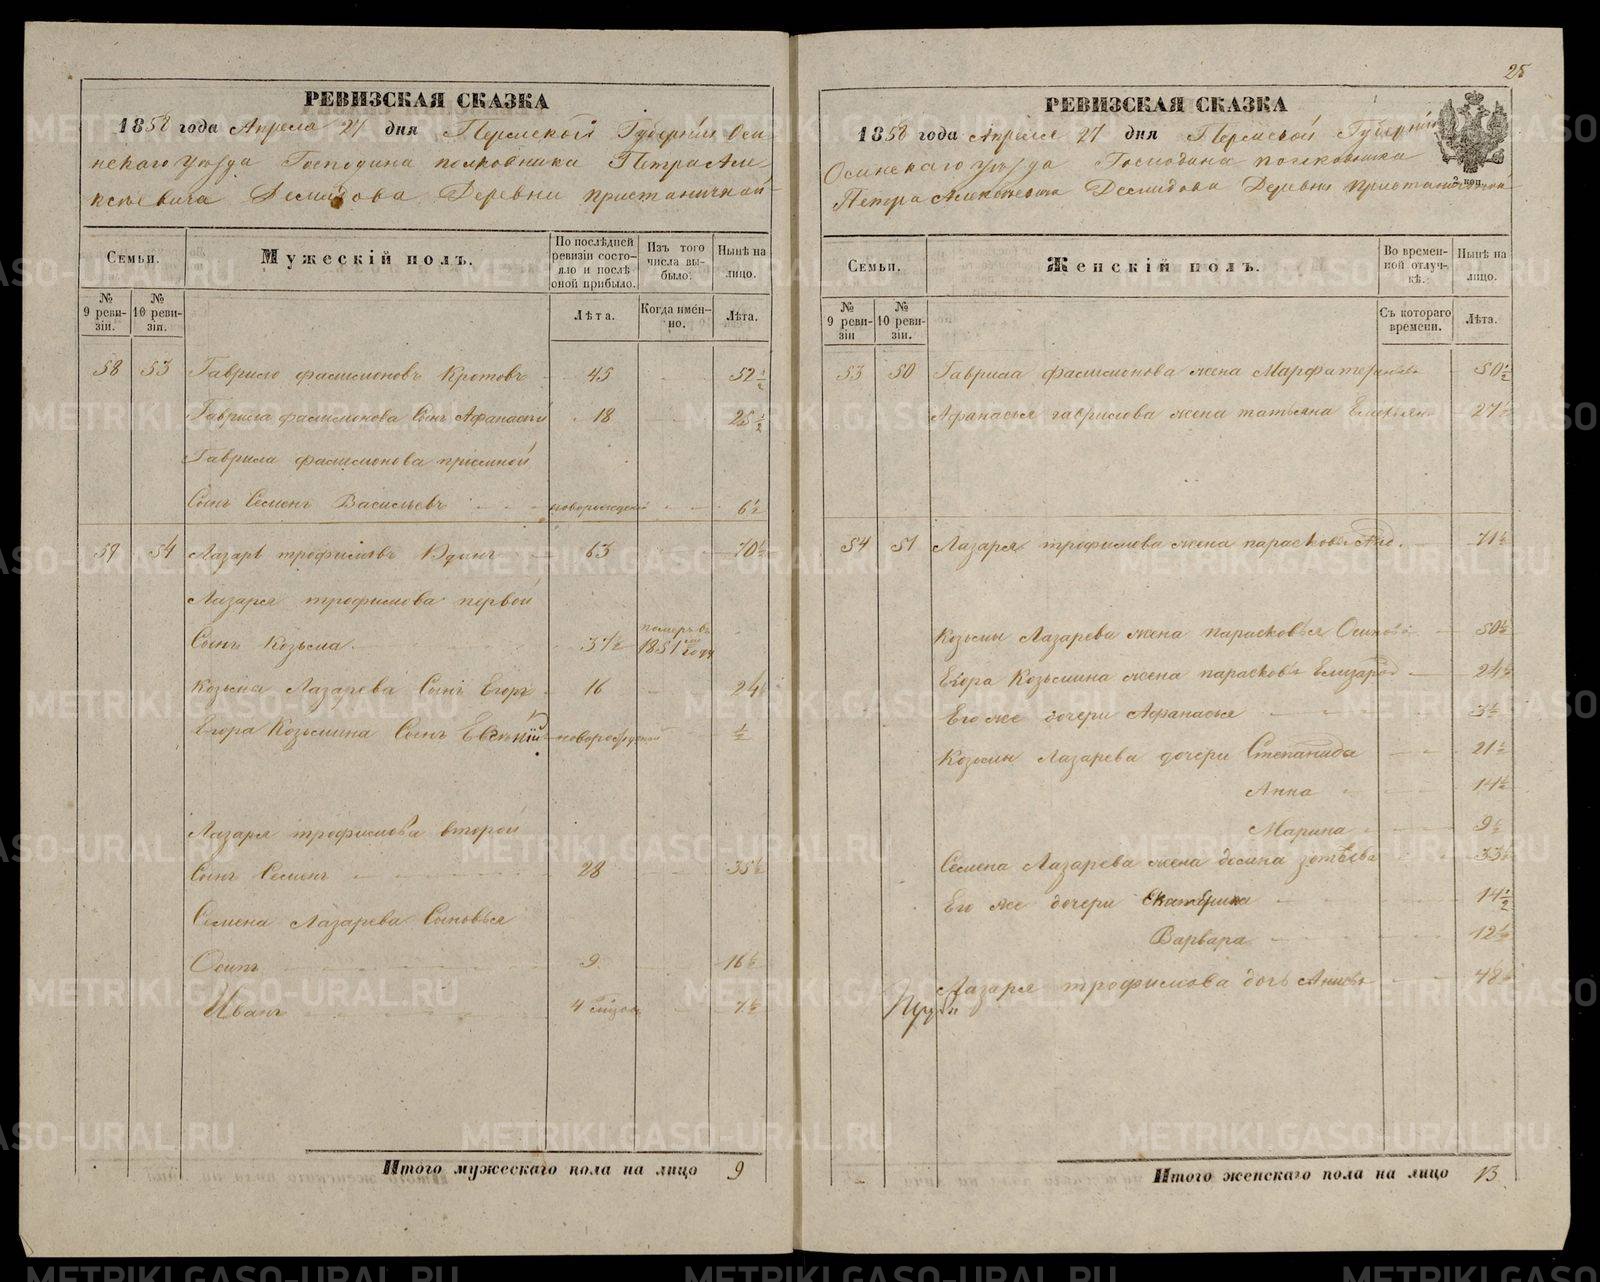 РЕВИЗСКАЯ СКАЗКА
1858 года Апреля 27 дня Пермской Губернии Осин
скаго уезда Господина полковника Петра Але
ксеевича Демидова Деревни Пристаничной
Семьи.
Мужескій полъ.
По послѣдней ревизіи состояло и послѣ оной прибыло.
Изъ того числа выбыло.
Нынѣ на лицо.
№ 9 ревизіи.
№ 10 ревизіи.
Лѣта.
Когда именно.
Лѣта.
58 53 Гаврило Фалимоновъ Кротовъ 45 52 ½
Гаврила Фалимонова Сынъ Афанасей 18 25 ½
Гаврила Фалимонова приемной
Сынъ Семенъ Васильевъ новорожденный 6 ½
59 54 Лазарь трофимовъ 63 70 ½
Лазаря трофимова первой
Сынъ Козьма 37 ½ померъ въ 1851 году
Козьма Лазарева Сынъ Егоръ 16 24
Егора Козьмина Сынъ новорожденной ½
Лазаря трофимова второй
Сынъ Семенъ 28 35 ½
Семена Лазарева Сыновья
Осипъ 9 16 ½
Иванъ 4 7 ½
Итого мужескаго пола на лицо 9
РЕВИЗСКАЯ СКАЗКА
25
2 коп
1858 года Апреля 27 дня Пермской Губернии
Осинскаго уезда Господина полковника
Петра Алексеевича Демидова Деревни Пристаничной
Семьи.
Женскій полъ.
Во временной отлучкѣ.
Нынѣ на лицо.
№ 9 ревизіи
№ 10 ревизіи.
Съ котораго времени.
Лѣта.
53 50 Гаврила Фалимонова жена Марфа 50 ½
Афанасья гаврилова жена татьяна Емельян 27 ½
54 51 Лазаря трофимова жена парасковья 71 ½
Козьмы Лазарева жена парасковья Осипова 50 ½
Егора Козьмина жена парасковья Елизаров 24 ½
Его же дочери Афанасья 3 ½
Козьмы Лазарева дочери Степанида 21 ½
Анна 14 ½
Марина 9 ½
Семена Лазарева жена зотѣева 33 ½
Его же дочери Екатерина 14 ½
Варвара 12 ½
Лазаря трофимова дочь 48 ½
Итого женскаго пола на лицо 13
METRIKI.GASO-URAL.RU